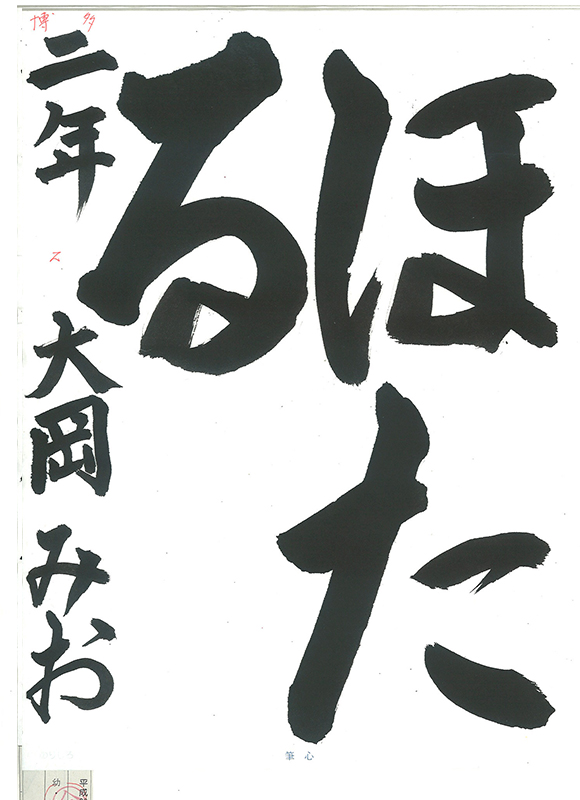 ほた
る
二年 大岡 みお
博多
ス
筆心
平成
幼